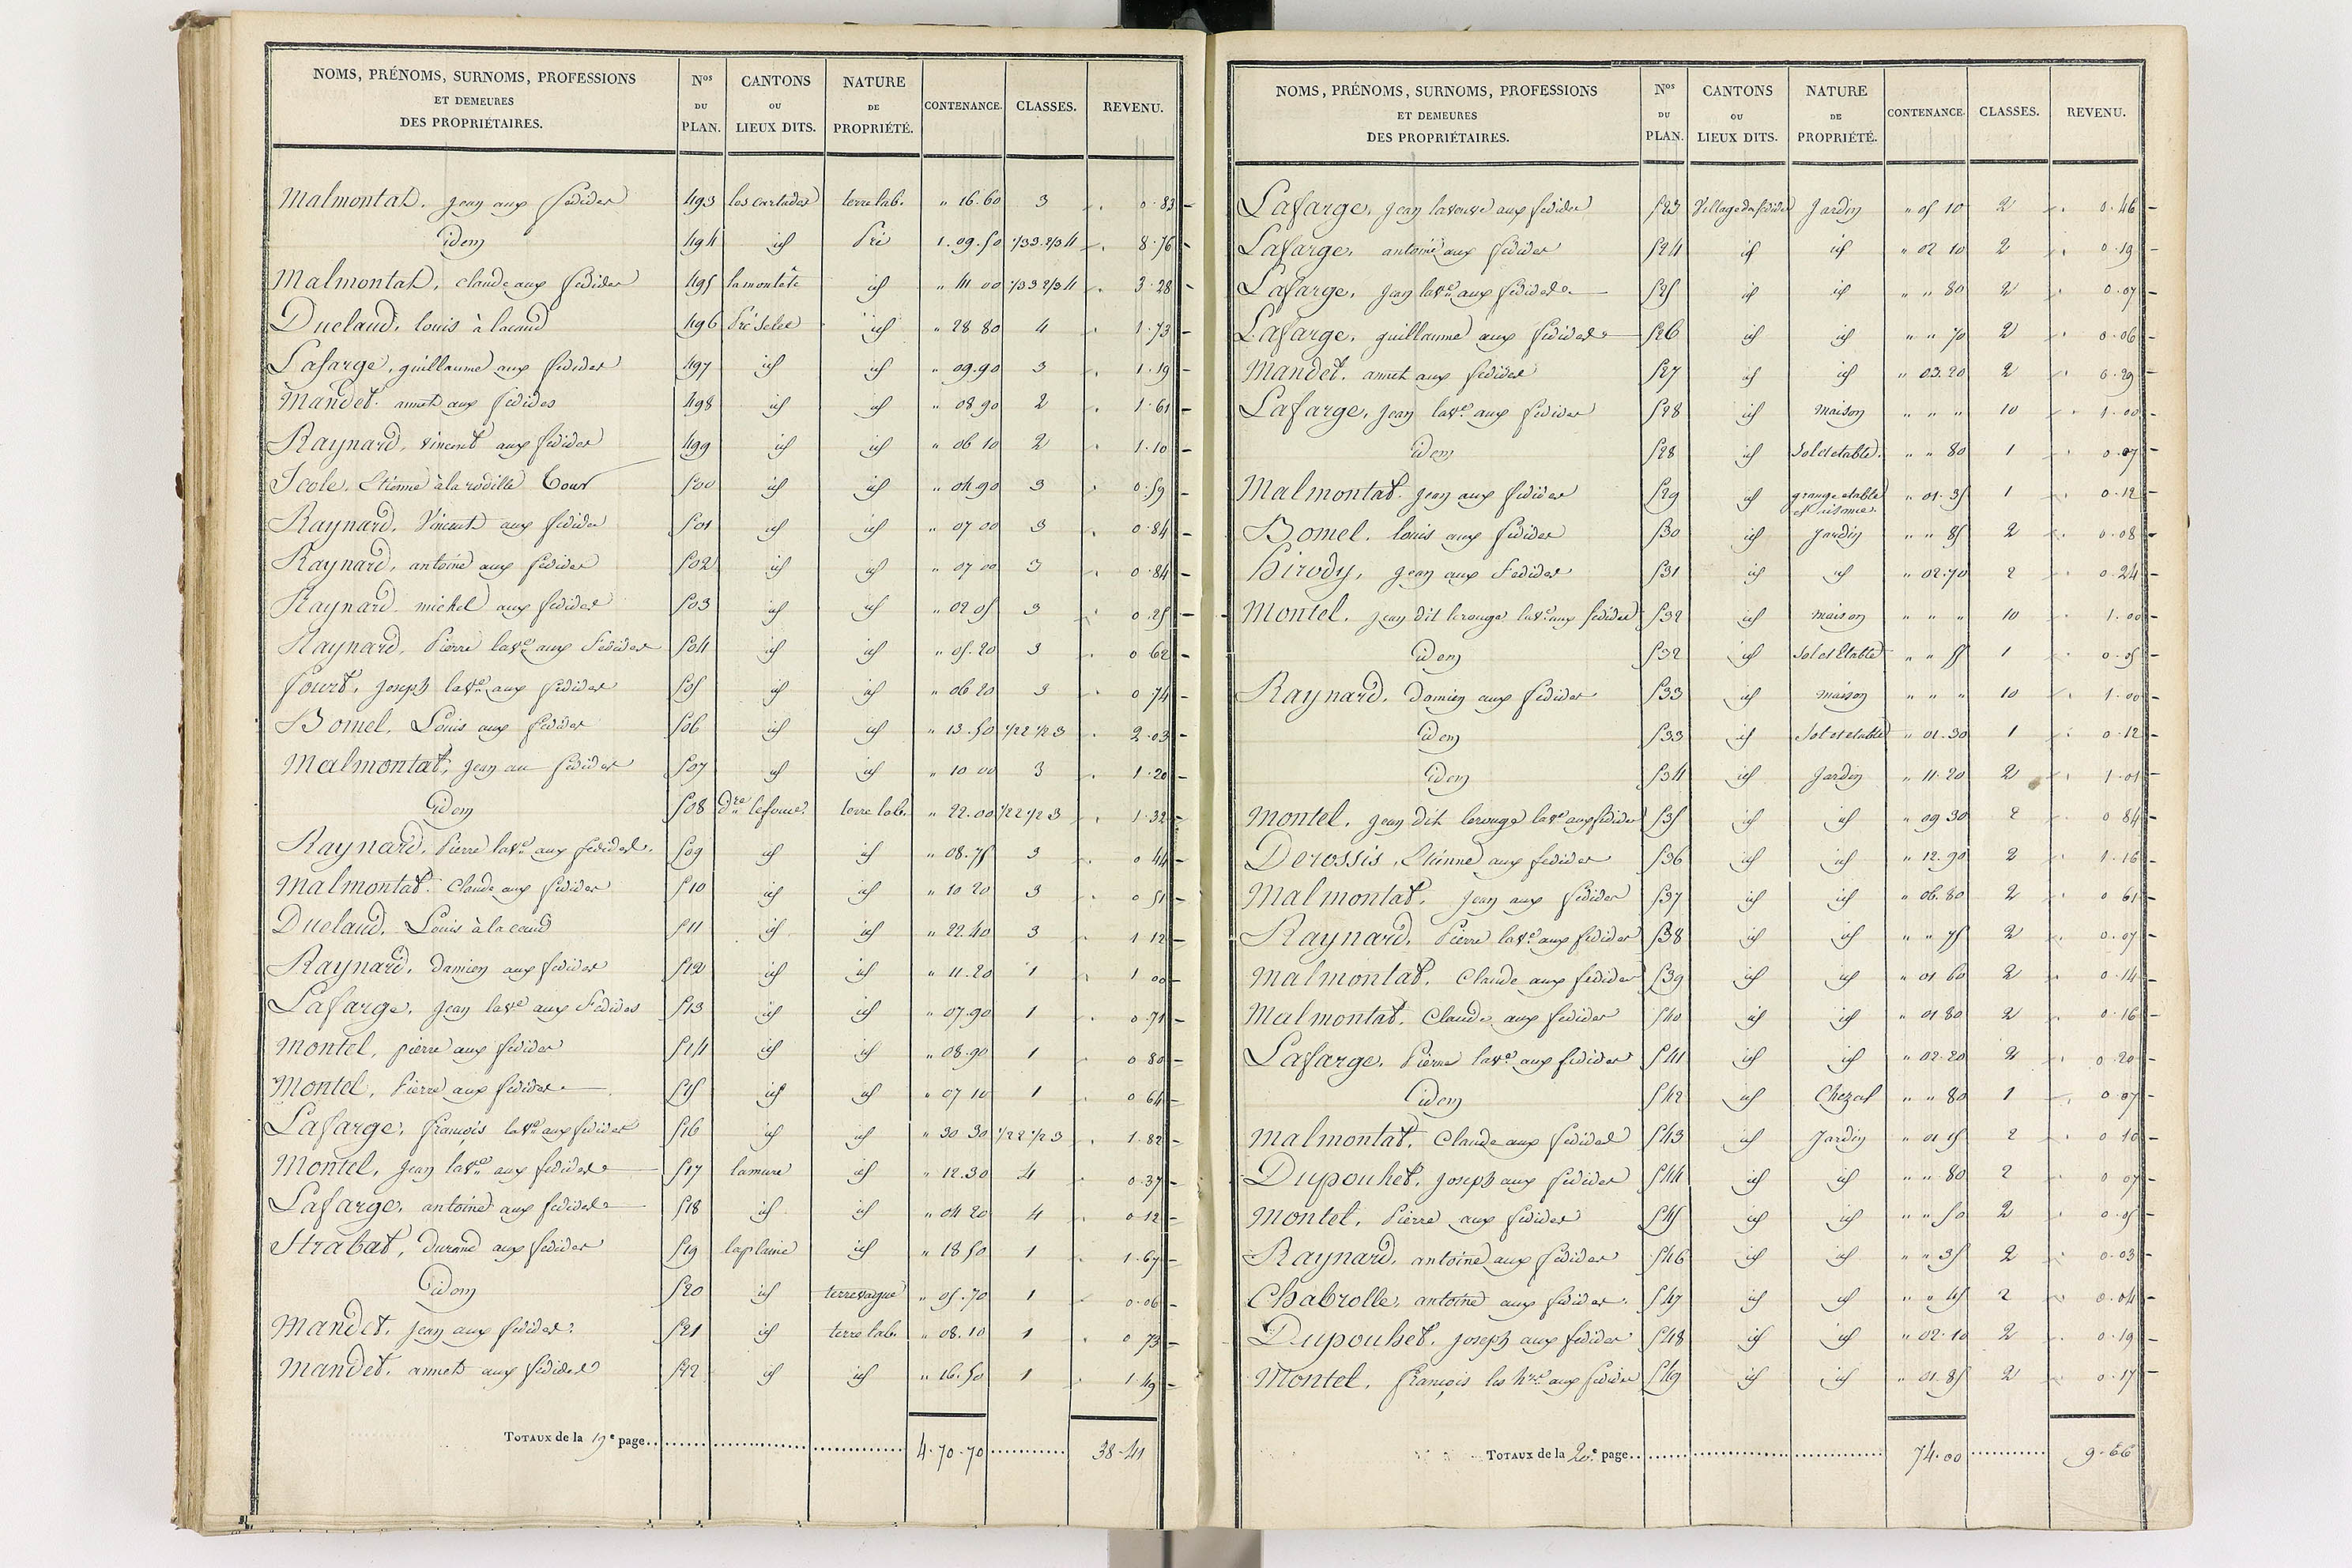 NOMS, PRÉNOMS, SURNOMS, PROFESSIONS ET DEMEURES DES PROPRIÉTAIRES. Nos DU PLAN. CANTONS OU LIEUX DITS. NATURE DE PROPRIÉTÉ. CONTENANCE. CLASSES. REVENU.
Malmontat. jean aux fedides 493 les cartades terre lab. " 16.60 3 0.83
idem 494 id Pré 1.09.50 1/3 3. 2/3 4 8.76
Malmontat, claude aux fedides 495 id " 41 00 1/3 3 2/3 4 3.28
Duclaud, louis à lacaud 496 id " 28 80 4 1.73
Lafarge, guillaume aux fedides 497 id id " 09.90 3 1.19
Mandet. annet aux fedides 498 id id " 08.90 2 1.61
Raynard, vincent aux fedides 499 id id " 06 10 2 1.10
Etienne à la rodille 500 id id " 04.90 3 0.59
Raynard, Vincent aux fedides 501 id id " 07 00 3 0.84
Raynard, antoine aux fedides 502 id id " 07 00 3 0.84
Raynard. michel aux fedides 503 id id " 02 05 3 0.25
Raynard, Pierre la ve aux fedides 504 id id " 05.20 3 0 62
joseph la ve aux fedides 505 id id " 06 20 3 0 74
Bomel, Louis aux fedides 506 id id " 13.50 1/2 2 1/2 3 2.03
Malmontat, jean au fedides 507 id id " 10 00 3 1.20
idem 508 terre lab. " 22.00 1/2 2 1/2 3 1.32
Raynard, Pierre la ve aux fedides. 509 id id " 08.75 3 0 44
Malmontat. Claude aux fedides 510 id id " 10 20 3 0 51
Duclaud, Louis à la caud 511 id id " 22.40 3 1 12
Raynard, damien aux fedides 512 id id " 11.20 1 1 00
Lafarge, jean la ve aux Fedides 513 id id " 07.90 1 0.71
Montel, pierre aux fedides 514 id id " 08.90 1 0 80
Montel, Pierre aux fedides 515 id id " 07 10 1 0 64
Lafarge, françois la ve aux fedides 516 id id " 30 30 1/2 2 1/2 3 1.82
Montel, jean la ve aux fedides 517 lamure id " 12.30 4 0.37
Lafarge, antoine aux fedides 518 id id " 04 20 4 0 12
Strabat, durand aux fedides 519 laplaine id " 18 50 1 1.67
idem 520 id terre vague " 05.70 1 0.06
Mandet, jean aux fedides. 521 id terre lab. " 08.10 1 0 73
Mandet. annet aux fedides 522 id id " 16.50 1 1.49
TOTAUX de la 19e page. 4.70.70 38.41
NOMS, PRÉNOMS, SURNOMS, PROFESSIONS ET DEMEURES DES PROPRIÉTAIRES. Nos DU PLAN. CANTONS OU LIEUX DITS. NATURE DE PROPRIÉTÉ. CONTENANCE. CLASSES. REVENU.
Lafarge, jean la veuve aux fedides 523 Village des fedides Jardin " 05 10 2 0.46
Lafarge, antoine aux fedides 524 id id " 02 10 2 0.19
Lafarge, jean la ve aux fedides 525 id id " " 80 2 0.07
Lafarge, guillaume aux fedides 526 id id " " 70 2 0.06
Mandet. annet aux fedides 527 id id " 03.20 2 0.29
Lafarge, jean la ve aux fedides 528 id maison " " " 10 1.00
idem 528 id Sol et etable. " " 80 1 0.07
Malmontat. jean aux fedides 529 id grange etable et aisance. " 01.35 1 0.12
Bomel. louis aux fedides 530 id jardin " " 85 2 0.08
jean aux fedides 531 id id " 02.70 2 0.24
Montel. jean dit lerouge la ve aux fedides 532 id maison " " " 10 1.00
idem 532 id Sol et Etable " " 55 1 0.05
Raynard, Damien aux fedides 533 id maison " " " 10 1.00
idem 533 id Sol et etable " 01.30 1 0.12
idem 534 id Jardin " 11.20 2 1.01
Montel, jean dit lerouge la ve aux fedides 535 id id " 09 30 2 0 84
Derossis, Etienne aux fedides 536 id id " 12.90 2 1.16
Malmontat, jean aux fedides 537 id id " 06.80 2 0 61
Raynard, Pierre la ve aux fedides 538 id id " " 75 2 0.07
Malmontat. Claude aux fedides 539 id id " 01 60 2 0.14
Malmontat. Claude aux fedides 540 id id " 01 80 2 0.16
Lafarge, Pierre la ve aux fedides 541 id id " 02.20 2 0.20
idem 542 id Chezal " " 80 1 0 07
Malmontat, Claude aux fedides 543 id Jardin " 01 15 2 0 10
Dupouhet, joseph aux fedides 544 id id " " 80 2 0 07
Montel, Pierre aux fedides 545 id id " " 50 2 0.05
Raynard, antoine aux fedides 546 id id " " 35 2 0.03
Chabrolle, antoine aux fedides. 547 id id " " 45 2 0.04
Dupouhet, joseph aux fedides 548 id id " 02.10 2 0.19
Montel, françois les hers aux fedides 549 id id " 01.85 2 0.17
TOTAUX de la 20e page. 74.00 9.66